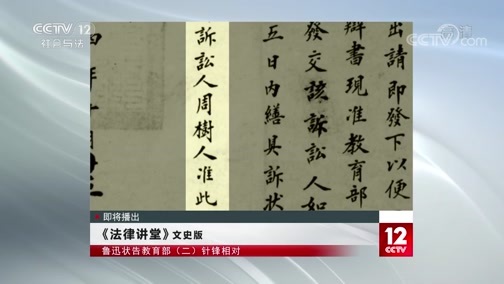 CCTV 12
社会与法
CCTV.com
出請即發下以便
辯書現准教育部
發交該訴訟人如
五日内繕具訴狀
訴訟人周樹人准此
即将播出
《法律讲堂》文史版
鲁迅状告教育部（二）针锋相对
12
CCTV